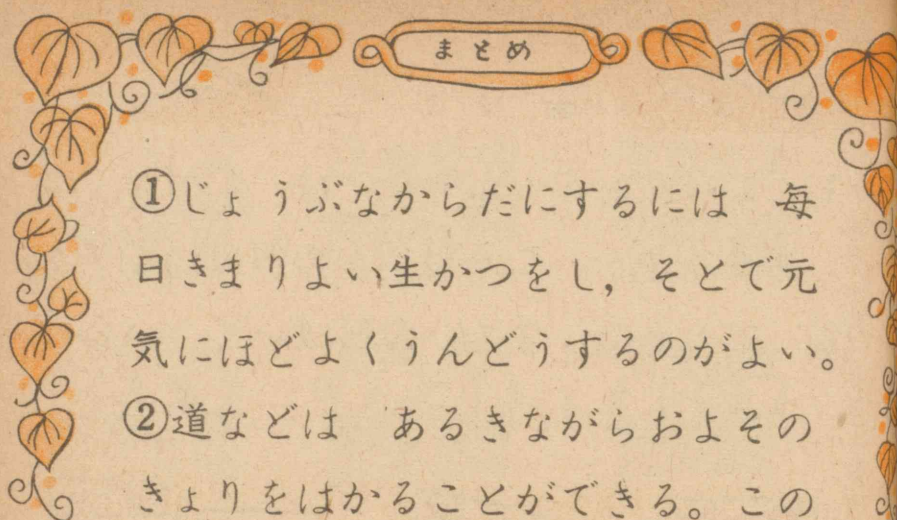 まとめ
①じょうぶなからだにするには　毎
日きまりよい生かつをし，そとで元
気にほどよくうんどうするのがよい。
②道などは　あるきながらおよその
きょりをはかることができる。この